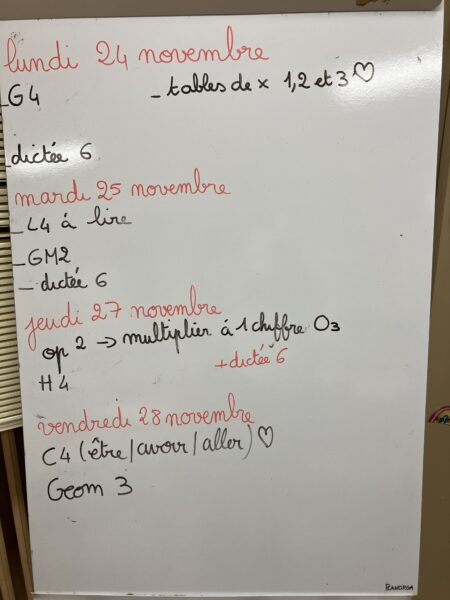 lundi 24 novembre
_G4 _ tables de x 1,2 et 3 ♡
_dictée 6
mardi 25 novembre
_L4 à lire
_GM2
_ dictée 6
jeudi 27 novembre
op 2 → multiplier à 1 chiffre O3
+ dictée 6
H4
vendredi 28 novembre
C4 (être/avoir/aller) ♡
Geom 3